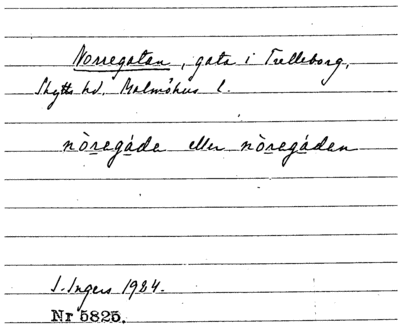 Norregatan, gata i Trelleborg,
Skytts hd. Malmöhus l.
nòregáda eller nòregádan
I. Ingers 1924.
Nr 5825.